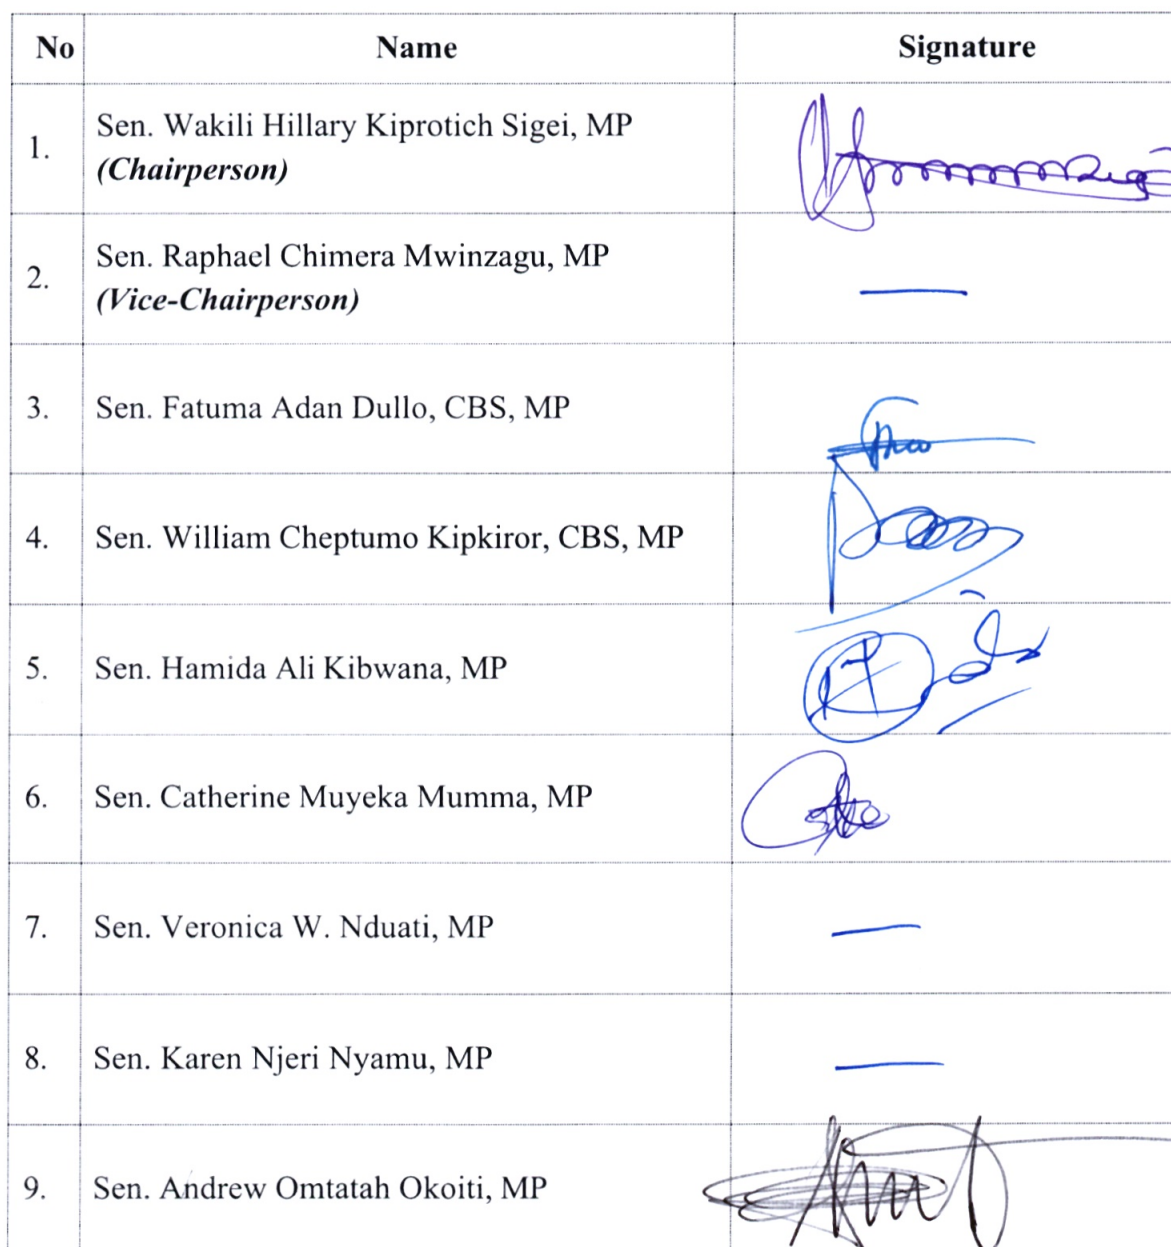 No Name Signature
1. Sen. Wakili Hillary Kiprotich Sigei, MP
(Chairperson)
2. Sen. Raphael Chimera Mwinzagu, MP
(Vice-Chairperson)
3. Sen. Fatuma Adan Dullo, CBS, MP
4. Sen. William Cheptumo Kipkiror, CBS, MP
5. Sen. Hamida Ali Kibwana, MP
6. Sen. Catherine Muyeka Mumma, MP
7. Sen. Veronica W. Nduati, MP
8. Sen. Karen Njeri Nyamu, MP
9. Sen. Andrew Omtatah Okoiti, MP